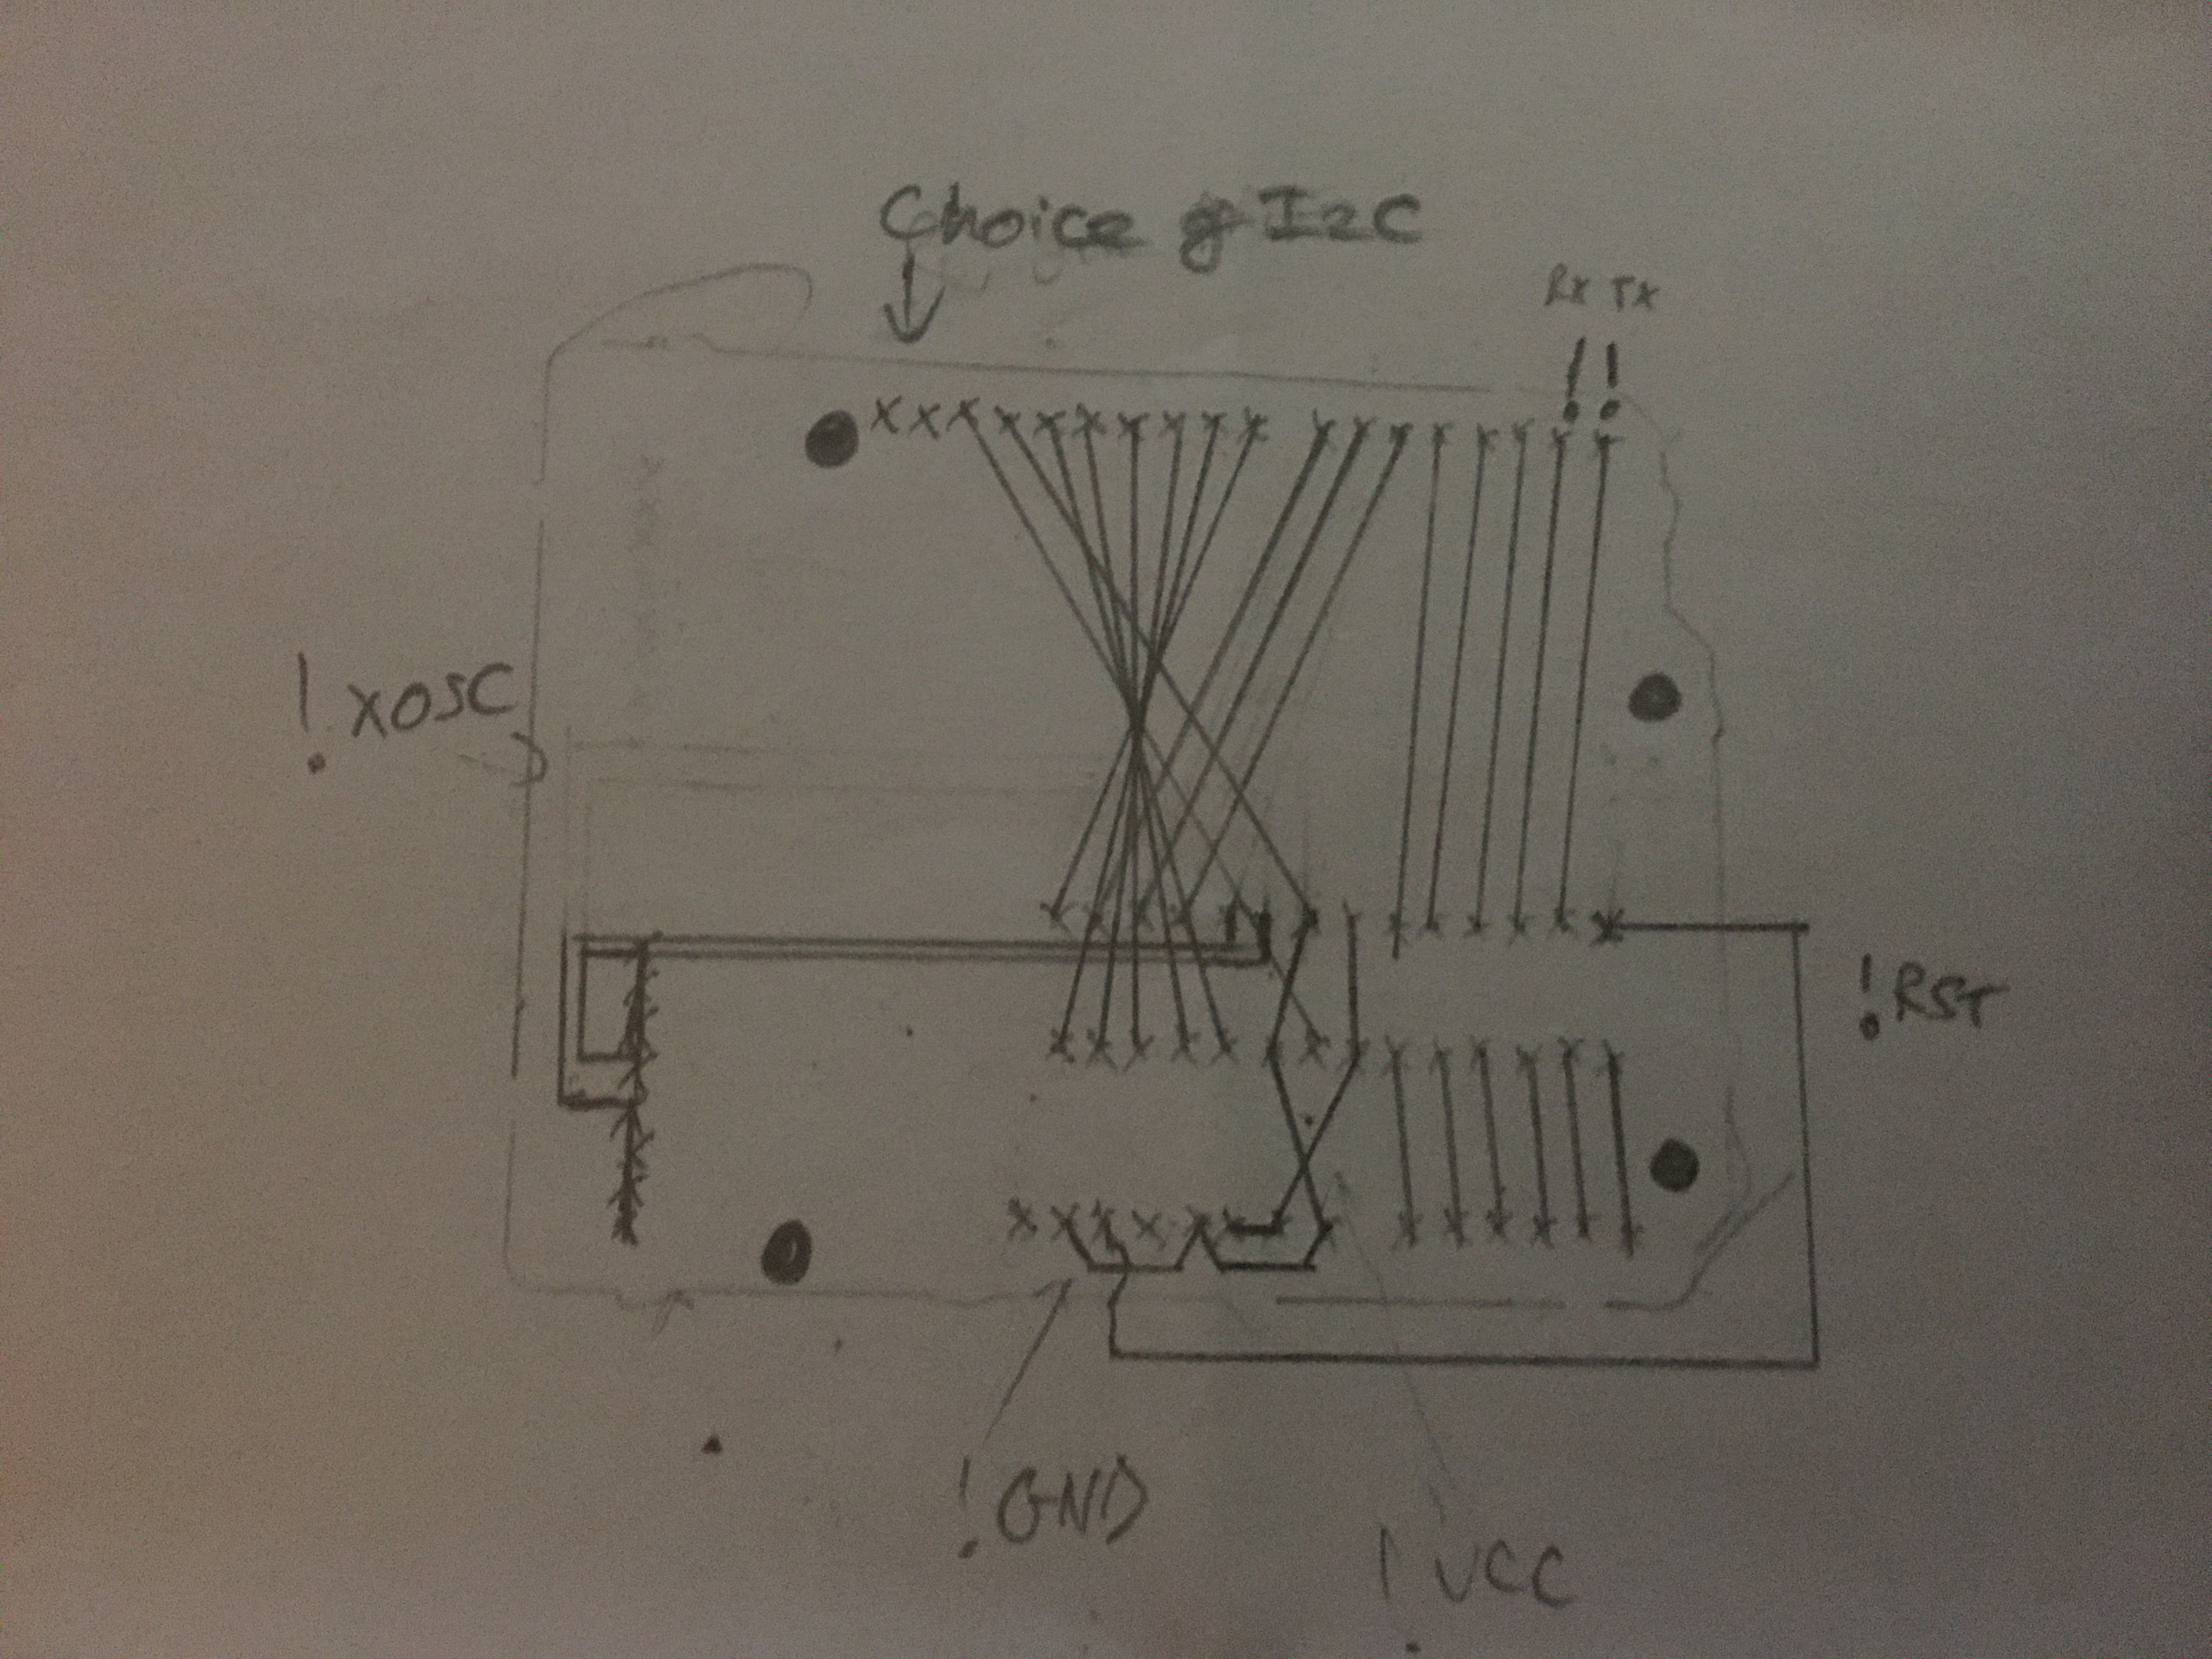 Choice of I2C
RX TX
! !
! XOSC
! RST
! GND
! VCC